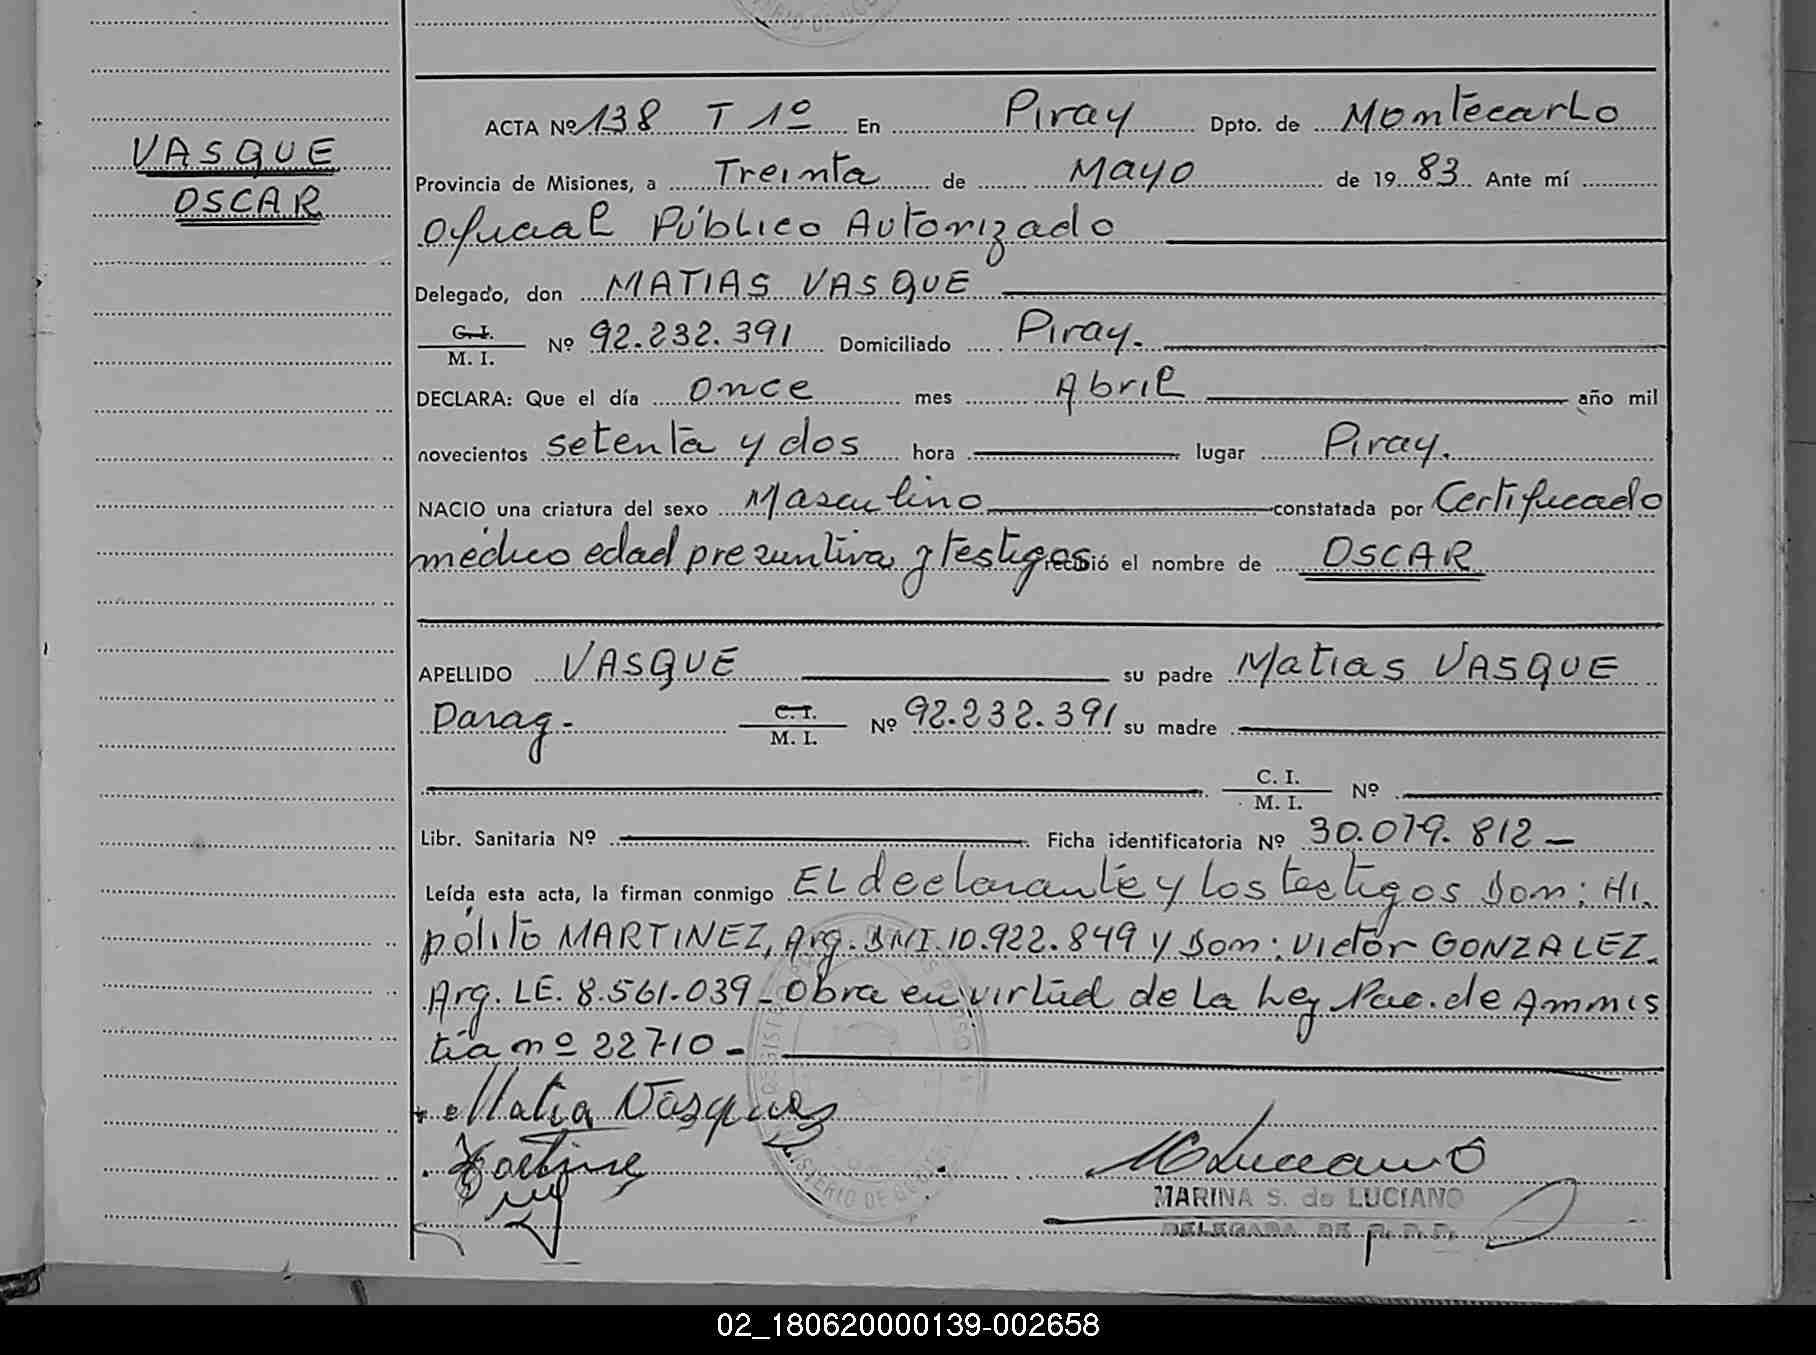 VASQUE
OSCAR
ACTA Nº 138 T 1º En Piray Dpto. de Montecarlo
Provincia de Misiones, a Treinta de Mayo de 19 83 Ante mí
Oficial Público Autorizado
Delegado, don MATIAS VASQUE
C. I.
M. I. Nº 92.232.391 Domiciliado Piray.
DECLARA: Que el día once mes Abril año mil
novecientos setenta y dos hora lugar Piray.
NACIO una criatura del sexo Masculino constatada por Certificado
médico edad presuntiva y testigos recibió el nombre de OSCAR
APELLIDO VASQUE su padre Matias VASQUE
Parag- C. I.
M. I. Nº 92.232.391 su madre
C. I.
M. I. Nº
Libr. Sanitaria Nº Ficha identificatoria Nº 30.079.812-
Leída esta acta, la firman conmigo El declarante y los testigos Don: Hi-
pólito MARTINEZ, Arg. DNI. 10.922.849 y Don: Victor GONZALEZ.
Arg. LE. 8.561.039- Obra en virtud de la Ley Nac. de Amnis
tia nº 22710-
Matia Vasques
MARINA S. de LUCIANO
DELEGADA DE R. P. P.
02_180620000139-002658